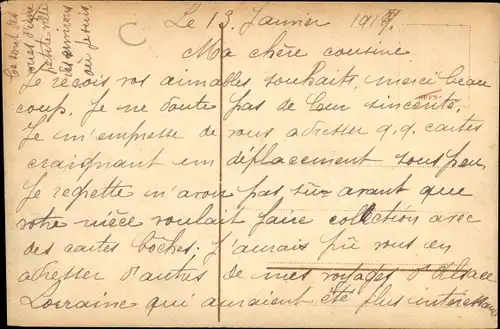 Le 13 Janvier 1919.
Ma chère cousine
Je reçois vos aimables souhaits, merci beau
coup. Je ne doute pas de leur sincérité.
Je m'empresse de vous adresser q.q. cartes
craignant un déplacement sous peu.
Je regrette n'avoir pas su avant que
votre nièce voulait faire collection avec
des cartes bôches. J'aurais pu vous en
adresser d'autres de mes voyages d'Alsace
Lorraine qui auraient été plus intéressants
Ce sont des
vues d'une
petite ville
des environs
où je suis